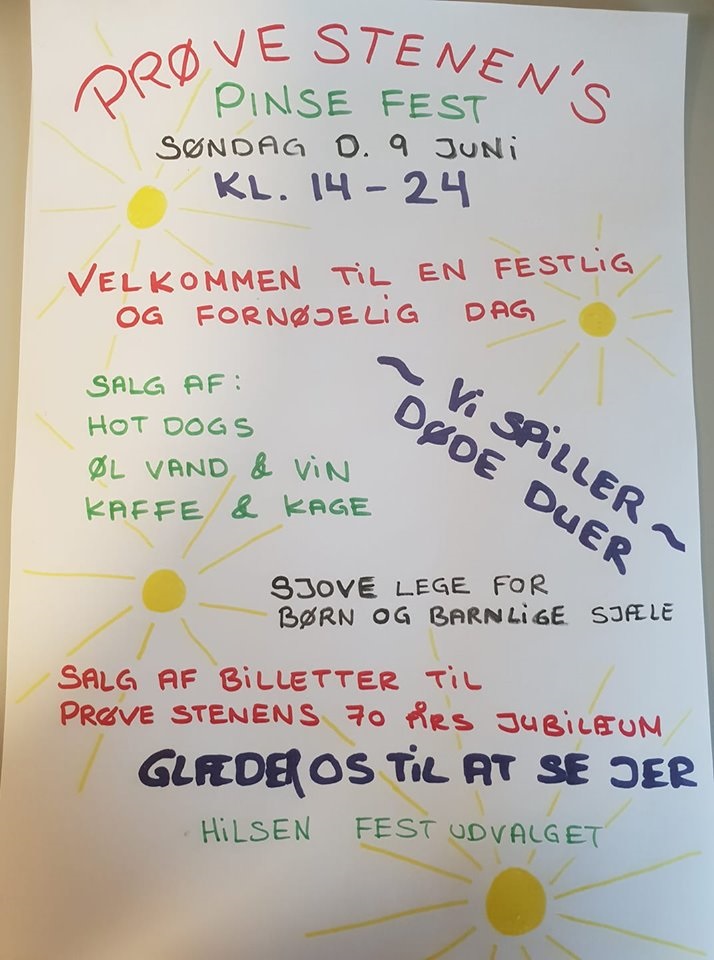 PRØVE STENEN'S
PINSE FEST
SØNDAG D. 9 JUNI
KL. 14 - 24
VELKOMMEN TIL EN FESTLIG
OG FORNØJELIG DAG
SALG AF:
HOT DOGS
ØL VAND & VIN
KAFFE & KAGE
~ Vi SPILLER
DØDE DUER ~
SJOVE LEGE FOR
BØRN OG BARNLIGE SJÆLE
SALG AF BILLETTER TIL
PRØVE STENENS 70 ÅRS JUBILÆUM
GLÆDER OS TIL AT SE JER
HILSEN FEST UDVALGET